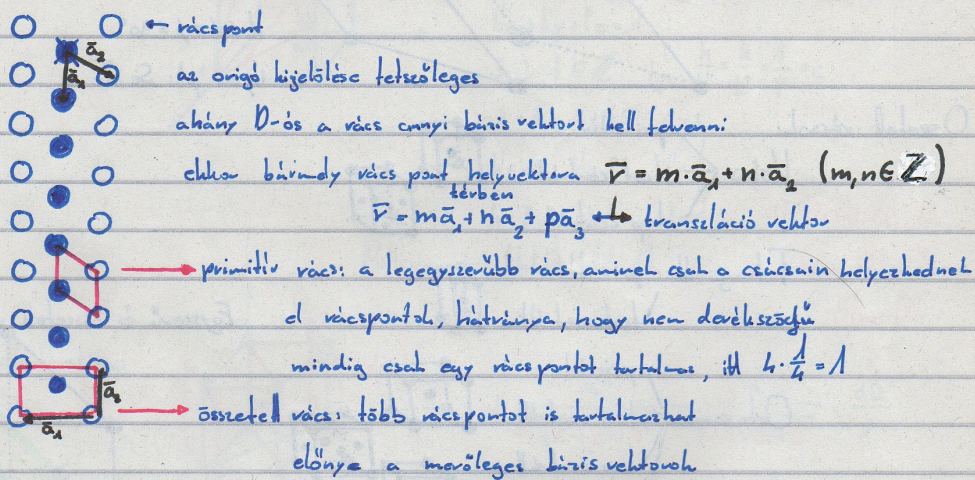 ← rácspont
ā₂
ā₁
az origó kijelölése tetszőleges
ahány D-ós a rács annyi bázis vektort kell felvenni
ekkor bármely rács pont helyvektora r̄ = m·ā₁ + n·ā₂ (m,n ∈ ℤ)
térben
r̄ = mā₁ + nā₂ + pā₃ ↔ transzláció vektor
→ primitív rács: a legegyszerűbb rács, aminek csak a csúcsain helyezkednek
el rácspontok, hátránya, hogy nem derékszögű
mindig csak egy rácspontot tartalmaz, itt 4·1/4 = 1
ā₂
ā₁
→ összetett rács: több rácspontot is tartalmazhat
előnye a merőleges bázis vektorok